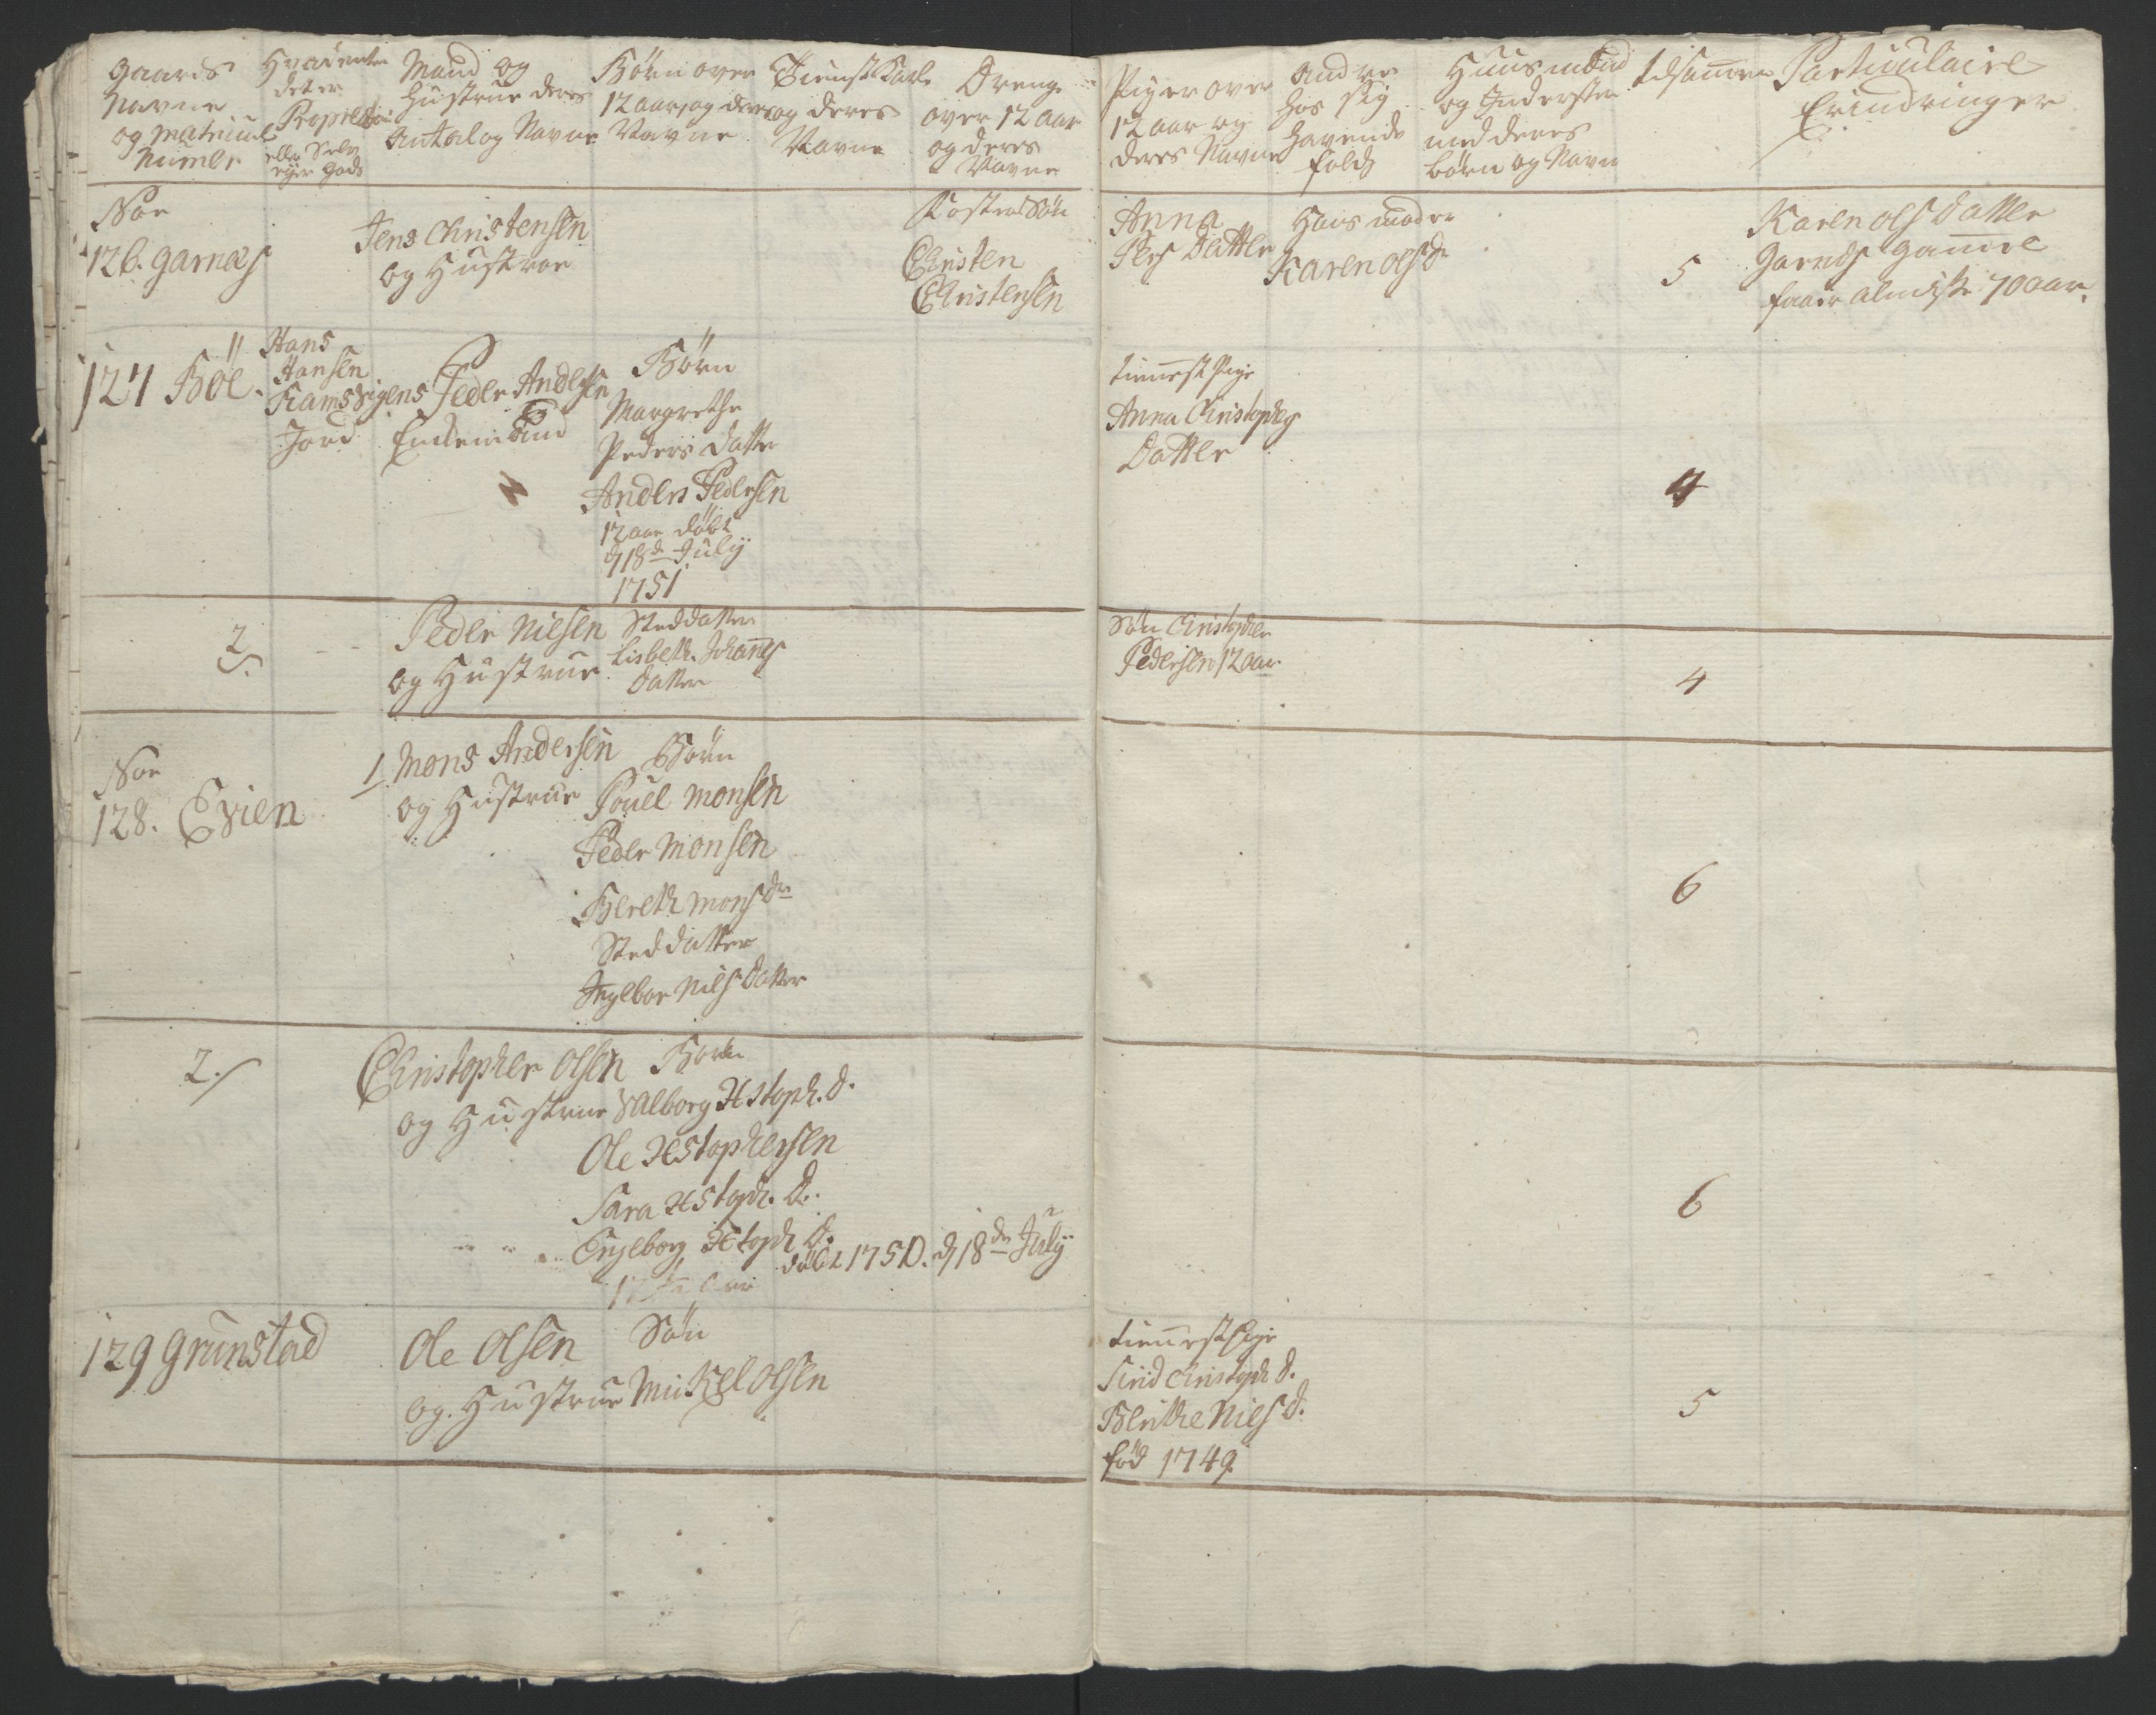 Gaards
Navne
og Matricul
Numer
Hvad enten
det er
Propriet
eller Selv
eyer Gods
Mand og
Hustrue deres
Antal og Navne
Børn over
12 aar, og deres
Navne
Tienst Karle
og deres
Navne
Drenge
over 12 aar
og deres
Navne
Piger over
12 aar og
deres Navne
Andre
hos sig
havende
folck
Huusmænd
og Inderster
med deres
børn og Navn
tilsamen
Particulaire
Erindringer
Noe
126. Garnæs
Jens Christensen
og Hustroe
Foster Søn
Christen
Christensen
Anna
Pers Datter
Hans moder
Karen Ols Dr
5
Karen Ols Datter
gamel
faaer almisse 70 aar.
127 Böe.
Hans
Hansen
Ramsvigens
Jord
Peder Andersen
Enckemand
Børn
Margrethe
Peders Datter
Anders Pedersen
12 aar døbt
d 18de July
1751
tienest Pige
Anna Christophers
Datter
4
2
Peder Nielsen
og Hustrue
Steddatter
Lisbeth. Johans
Datter
Søn Christopher
Pedersen 12 aar
4
Noe
128. Evien
1 Mons Andersen
og Hustrue
Børn
Pouel Monsen
Peder Monsen
Bereth Mons Dr
Steddatter
Ingebor Niels Datter
6
2.
Christopher Olsen
og Hustrue
Børn
Valborg Xstoph. D.
Ole Xstophersen
Sara Xstoph. D.
Engeborg Xstoph D.
døbt 1750. d 18de July
6
129 Grunstad
Ole Olsen
og Hustrue
Søn
Mickel Olsen
tienest Pige
Sirid Christoph D.
Berithe Niels D.
född 1749.
5